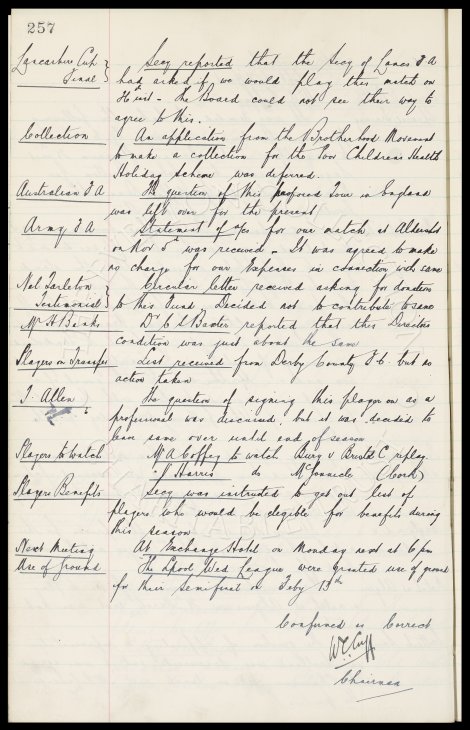 257
Lancashire Cup Final
Secy reported that the Secy of Lancs F A
had asked if we would play this match on
1st - The Board could not see their way to
agree to this.
Collection
An application from the Brotherhood Movement
to make a collection for the Poor Childrens Health
Holiday Scheme was deferred.
Australian F A
The question of this proposed Tour in England
was left over for the present
Army F A
Statement of a/cs for our match at Aldershot
on Nov 5th was received - It was agreed to make
no charge for our Expenses in connection with same
Nel Tarleton Testimonial
Circular letter received asking for donation
to this Fund. Decided not to contribute to same
Mr H Banks
Dr C S Baxter reported that this Directors
condition was just about the same
Players on Transfer
List received from Derby County F C. but no
action taken
J. Allen
The question of signing this player on as a
professional was discussed, but it was decided to
leave same over until end of season
Players to Watch
Mr A Coffey to watch Bury v Bristol C replay
" J Harris do McGonnicle (Cork)
Players Benefits
Secy was instructed to get out list of
players who would be elegible for benefits during
this season
Next Meeting
At Exchange Hotel on Monday next at 6 pm
Use of Ground
The Lpool Wed League were granted use of ground
for their semifinal on Feby 13th
Confirmed as Correct
W.C. Cuff
Chairman